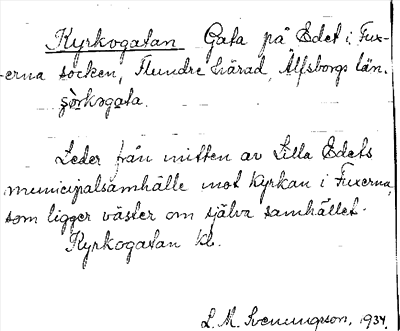 Kyrkogatan Gata på Edet i Fux-
erna socken, Flundre härad, Älfsborgs län.
Leder från mitten av Lilla Edets
municipalsamhälle mot kyrkan i Fuxerna,
som ligger väster om själva samhället.
Kyrkogatan kl.
L. M. Svenungsson, 1934.